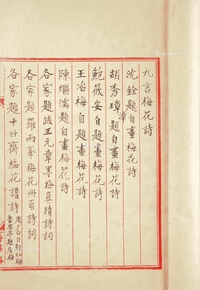 九言梅花詩
沈銓題自畫梅花詩
胡秀璋題自畫梅花詩
鮑筱安自題畫梅花詩
王冶梅自題畫梅花詩
陳繼儒題自畫梅花詩
各家題跋王元章墨梅真蹟詩詞
各家題羅兩峯梅花冊頁詩詞
各家題十竹齋梅花譜詩